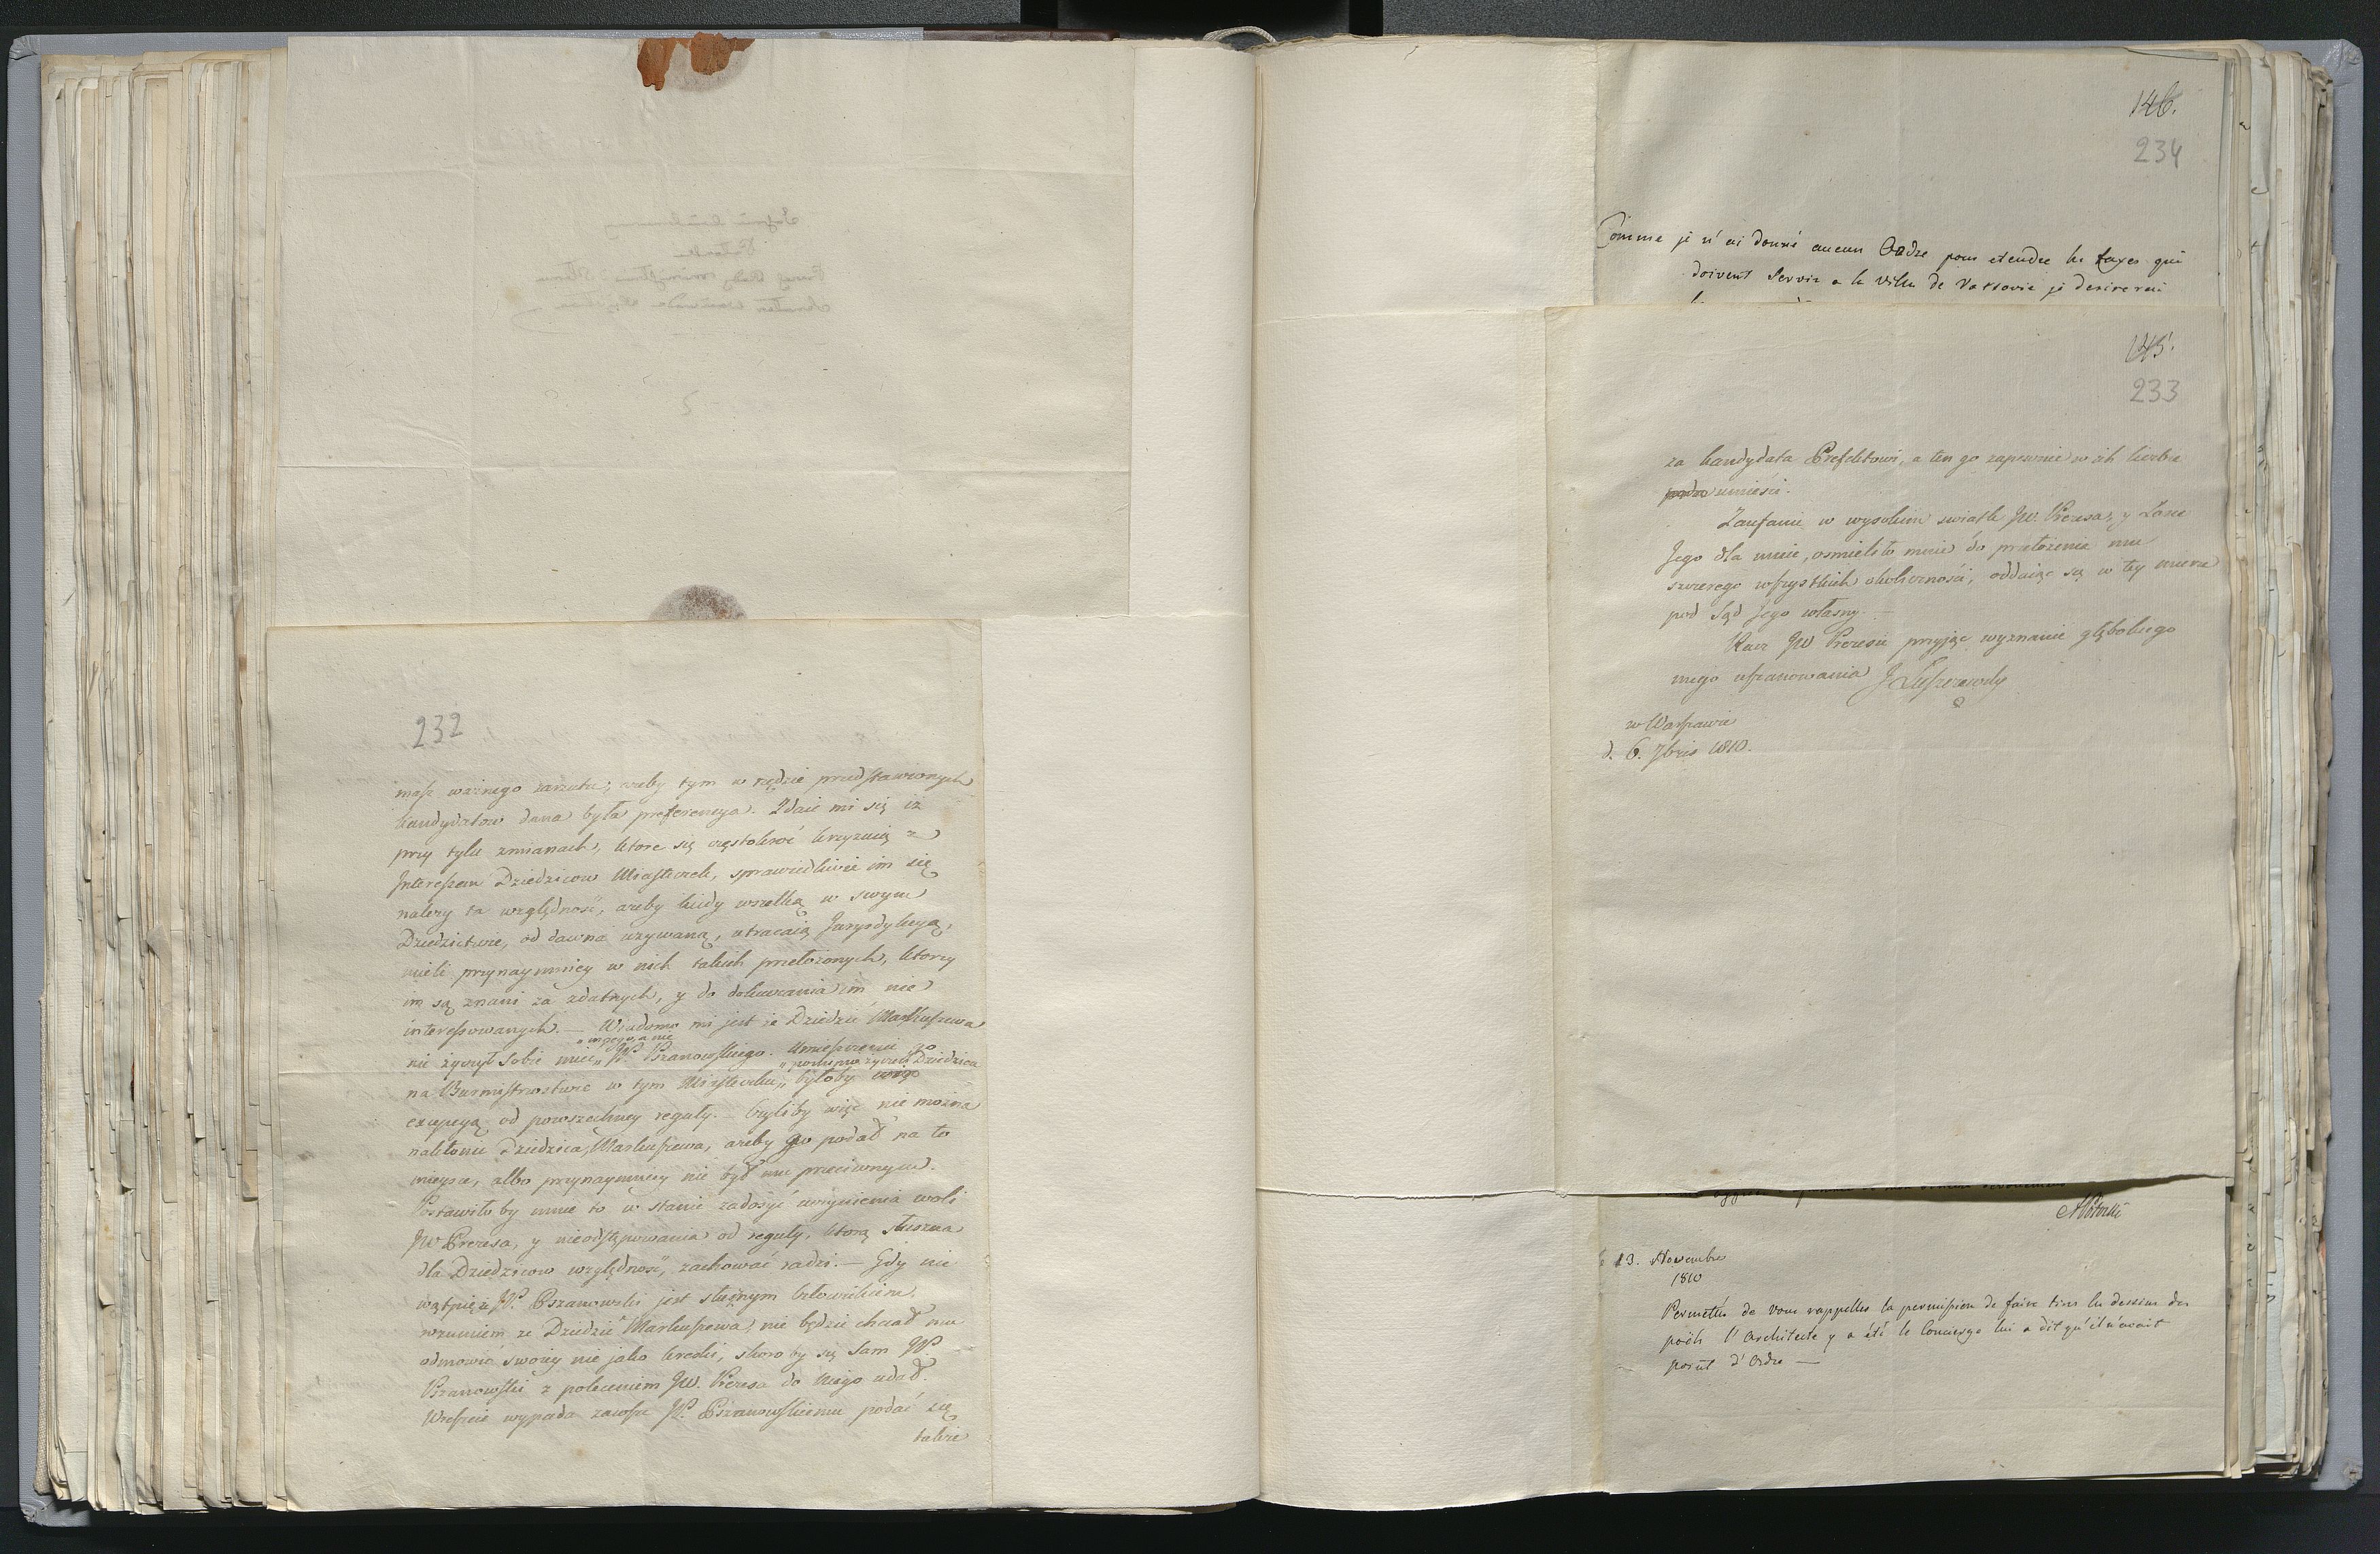 232
masz ważnego zarzutu; ażeby tym w rzędzie przedstawionych
kandydatow dana była preferencya. Zdaie mi się iż
przy tylu zmianach, ktore się częstokroć krzyżuią z
Interessem Dziedzicow Miasteczek, sprawiedliwie im się
należy ta względność, ażeby kiedy wszelką w swym
Dziedzictwie, od dawna używaną, utracaią Jurysdykcyą,
mieli przynaymniey w nich takich przełożonych, ktorzy
im są znani za zdatnych, y do dokuczania im nie
interessowanych. — Wiadomo mi jest że Dziedzic Markuszewa
nie życzył sobie mieć W. Pszanowskiego. Umieszczenie go
na Burmistrostwie w tym Miasteczku „ pomimo życzeń Dziedzica byłoby
excepcyą od powszechney reguły. — byliby więc nie można
nakłonić Dziedzica Markuszewa, ażeby go podał na to
mieysce, albo przynaymniey nie był mu przeciwnym.
Postawiło by mnie to w stanie zadosyć uczynienia woli
JW Prezesa, y nieodstępowania od reguły, ktorą słuszna
dla Dziedzicow względność, zachować radzi. — Gdy nie
wątpię iż W. Pszanowski jest słusznym człowiekiem,
rozumiem że Dziedzic Markuszewa, nie będzie chciał mu
odmowić swoiey nie jako kreski, skoro by się sam W.
Pszanowski z poleceniem JW. Prezesa do niego udał.
Wreszcie wypada zawsze W. Pszanowskiemu podać się
takie
146.
234
Comme je n'ai donné aucun Ordre pour etendre les taxes qui
doivent servir a la ville de Varsovie je desirerai
145.
233
za kandydata Prefektowi, a ten go zapewnie w ich liczbie
umieści.
Zaufanie w wysokim swiatle JW. Prezesa, y
Jego dla mnie, osmieliło mnie do przełożenia mu
szczerego wszystkich okoliczności, oddaiąc się w tey mierze
pod Sąd Jego własny. —
Racz JW Prezesie przyjąć wyznanie głębokiego
mego uszanowania J Łuszczewski
w Warszawie
d. 6. 7bris 1810.
APotocki
13. Novembre
1810
Permettés de vous rappeller la permission de faire tirer les dessins des
poëls l'Architecte y a été le Concierge lui a dit qu'il n'avoit
point d'Ordre —